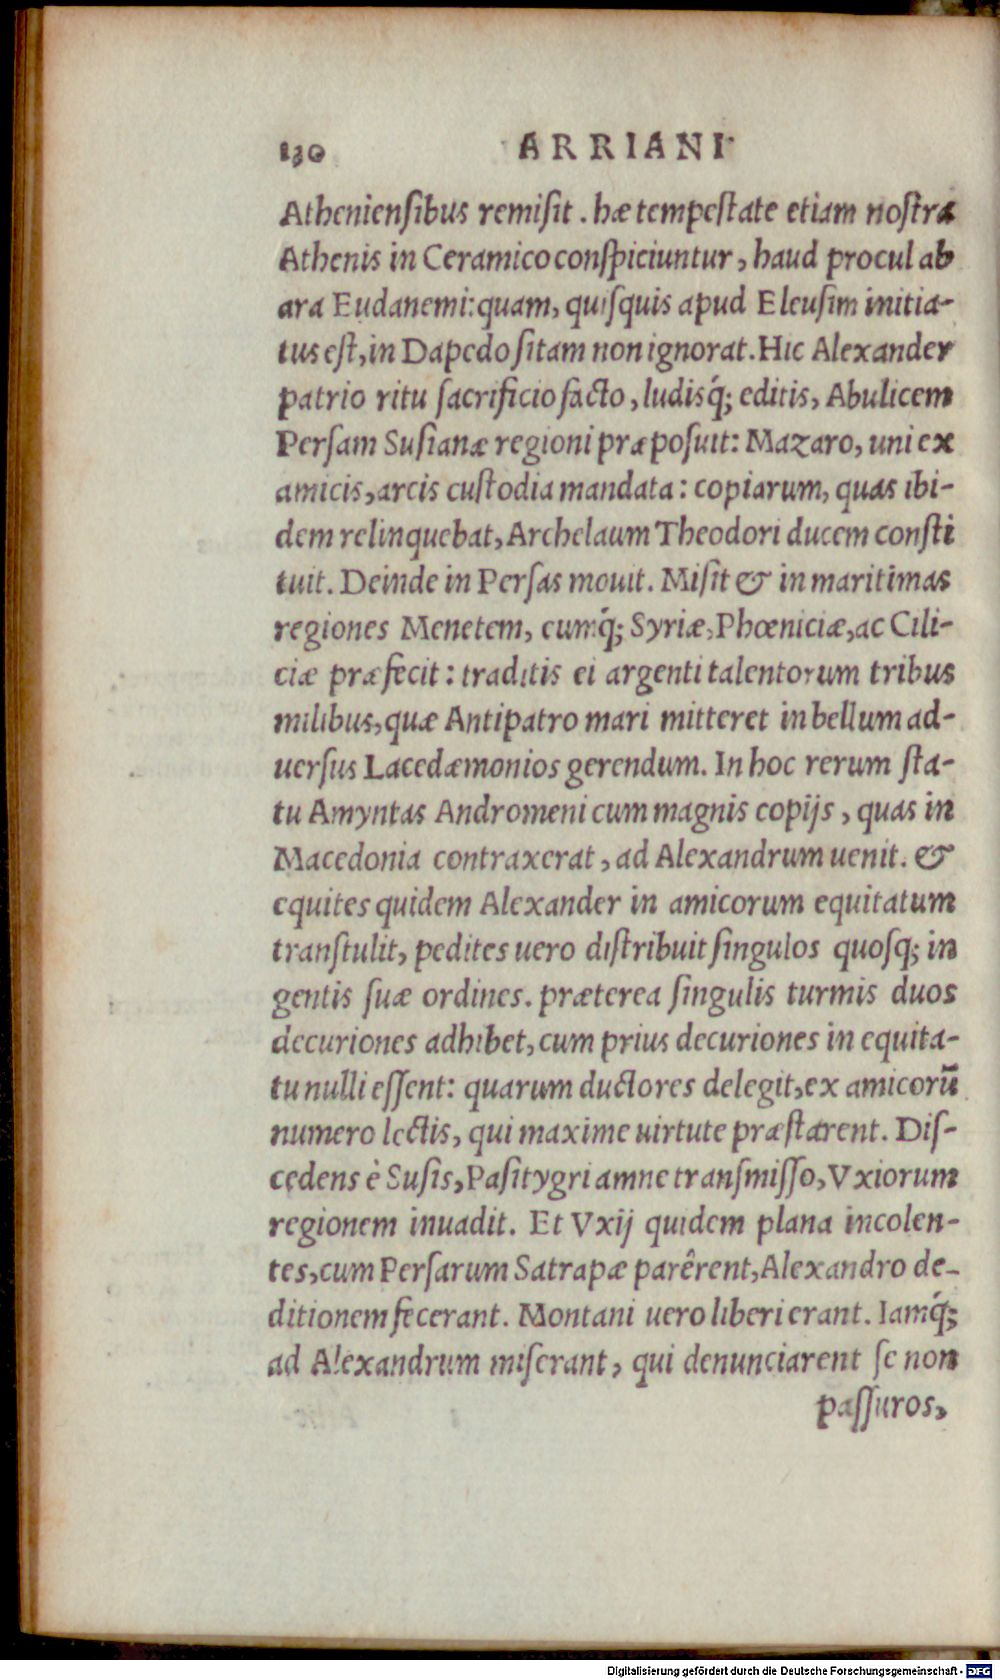 130 ARRIANI
Atheniensibus remisit. hæ tempestate etiam nostra
Athenis in Ceramico conspiciuntur, haud procul ab
ara Eudanemi: quam, quisquis apud Eleusim initia-
tus est, in Dapedo sitam non ignorat. Hic Alexander
patrio ritu sacrificio facto, ludisq́; editis, Abulicem
Persam Susianæ regioni præposuit: Mazaro, uni ex
amicis, arcis custodia mandata: copiarum, quas ibi-
dem relinquebat, Archelaum Theodori ducem consti
tuit. Deinde in Persas mouit. Misit & in maritimas
regiones Menetem, eumq́; Syriæ, Phœniciæ, ac Cili-
ciæ præfecit: traditis ei argenti talentorum tribus
milibus, quæ Antipatro mari mitteret in bellum ad-
uersus Lacedæmonios gerendum. In hoc rerum sta-
tu Amyntas Andromeni cum magnis copijs, quas in
Macedonia contraxerat, ad Alexandrum uenit. &
equites quidem Alexander in amicorum equitatum
transtulit, pedites uero distribuit singulos quosq; in
gentis suæ ordines. præterea singulis turmis duos
decuriones adhibet, cum prius decuriones in equita-
tu nulli essent: quarum ductores delegit, ex amicorũ
numero lectis, qui maxime uirtute præstarent. Dis-
cedens è Susis, Pasitygri amne transmisso, Vxiorum
regionem inuadit. Et Vxij quidem plana incolen-
tes, cum Persarum Satrapæ parêrent, Alexandro de-
ditionem fecerant. Montani uero liberi erant. Iamq́;
ad Alexandrum miserant, qui denunciarent se non
passuros,
Digitalisierung gefördert durch die Deutsche Forschungsgemeinschaft - DFG